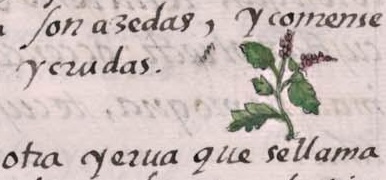 son azedas, y comense
y crudas.
otra yerua que se llama